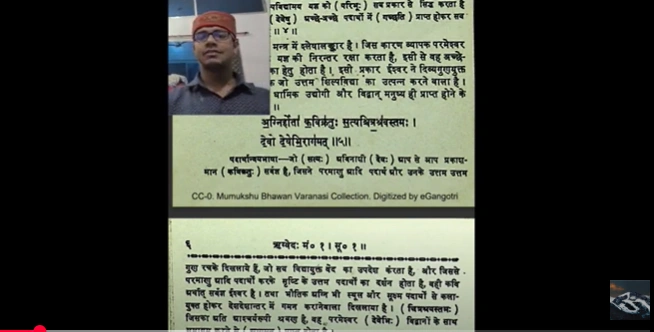 यविद्यामय यज्ञ को ( परिभूः ) सब प्रकार से सिद्ध करता है
( देवेषु ) अच्छे-अच्छे पदार्थों में ( गच्छति ) प्राप्त होकर सब
॥ ४ ॥
मन्त्र में श्लेषालङ्कार है । जिस कारण व्यापक परमेश्वर
यज्ञ की निरन्तर रक्षा करता है, इसी से वह अच्छे-
का हेतु होता है । इसी प्रकार ईश्वर ने दिव्यगुणयुक्त
जो उत्तम शिल्पविद्या का उत्पन्न करने वाला है ।
धार्मिक उद्योगी और विद्वान् मनुष्य ही प्राप्त होने के
॥
अ॒ग्निर्होता॑ क॒विक्र॑तुः स॒त्यश्चि॒त्रश्र॑वस्तमः ।
दे॒वो दे॒वेभि॒राग॑मत् ॥५॥
पदार्थान्वयभाषा—जो ( सत्यः ) अविनाशी ( देवः ) आप से आप प्रकाश-
मान ( कविक्रतुः ) सर्वज्ञ है, जिसने परमाणु आदि पदार्थ और उनके उत्तम उत्तम
CC-0. Mumukshu Bhawan Varanasi Collection. Digitized by eGangotri
६ ऋग्वेदः मं० १ । सू० १ ॥
गुण रचके दिखलाये हैं, जो सब विद्यायुक्त वेद का उपदेश करता है, और जिससे
परमाणु आदि पदार्थों करके सृष्टि के उत्तम पदार्थों का दर्शन होता है, वही कवि
अर्थात् सर्वज्ञ ईश्वर है । तथा भौतिक अग्नि भी स्थूल और सूक्ष्म पदार्थों से कला-
युक्त होकर देशदेशान्तर में गमन करानेवाला दिखलाया है । ( चित्रश्रवस्तमः )
जिसका अति आश्चर्यरूपी श्रवण है, वह परमेश्वर ( देवेभिः ) विद्वानों के साथ